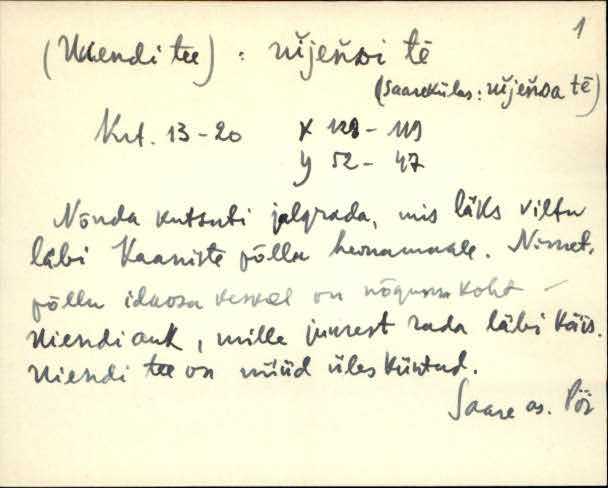 1
(Uuendi tee) : tē
(Saarekülas: tē)
Krt. 13-20 X 128 - 119
y 52 - 47
Nõnda kutsuti jalgrada, mis läks viltu
läbi Kaaniste põllu heinamaale. Nimet.
põllu idaosa keskel on nõgusam koht -
auk, mille juurest rada läbi käis.
tee on nüüd üles küntud.
Saare as. Pöi